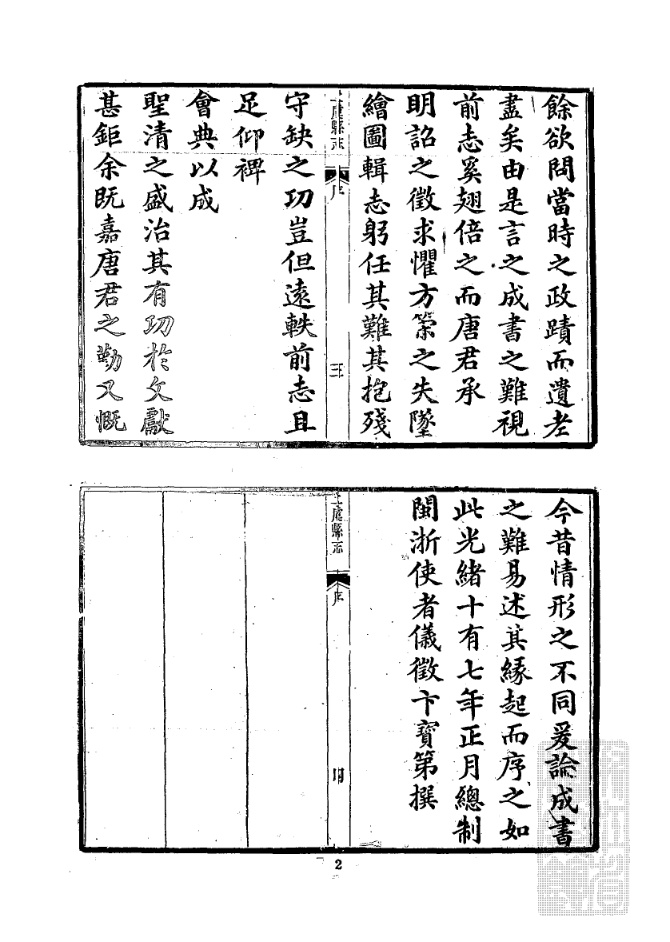 餘欲問當時之政蹟而遺老
盡矣由是言之成書之難視
前志奚翅倍之而唐君承
明詔之徵求懼方策之失墜
繪圖輯志躬任其難其抱殘
上虞縣志
序
三
守缺之功豈但遠軼前志且
足仰裨
會典以成
聖清之盛治其有功於文獻
甚鉅余既嘉唐君之勤又慨
今昔情形之不同爰論成書
之難易述其緣起而序之如
此光緒十有七年正月總制
閩浙使者儀徵卞寶第撰
上虞縣志
序
四
2